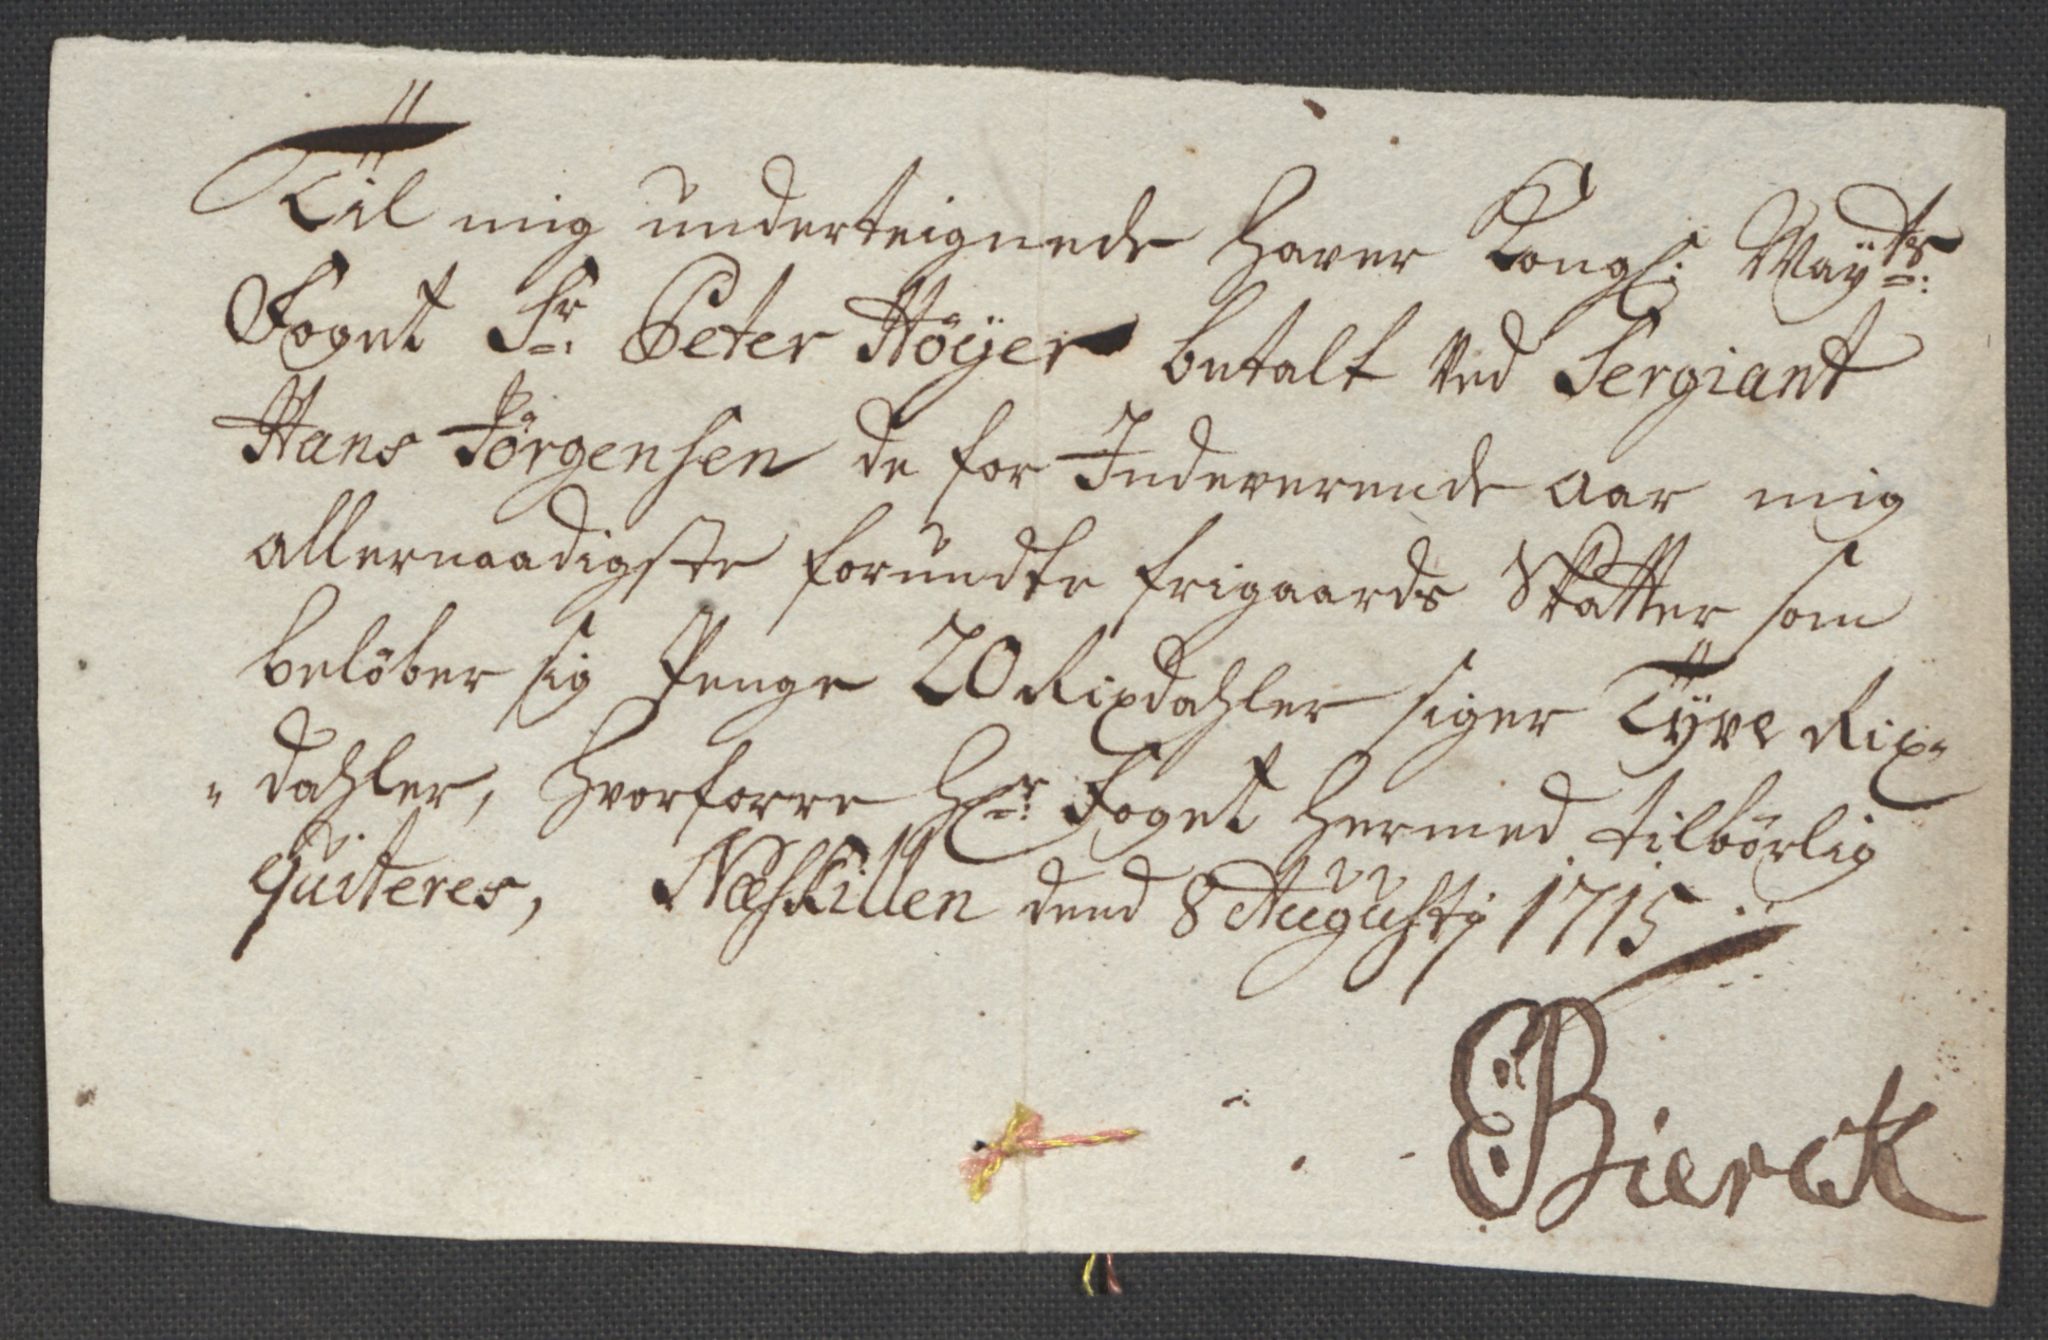 Til mig underteignede haver Kongl: Mayts:
Foget Sr: Peter Höÿer betalt ved Sergiant
Hans Jörgensen de for Indeverende aar mig
allernaadigste forundte frigaards Skatter som
belöber sig Penge 20 Rixdahler siger Tÿve Rix-
"dahler, hvorforre Hr: Foget hermed tilbörlig
quiteres, Næskillen dend 8 Augustj 1715
EBierck